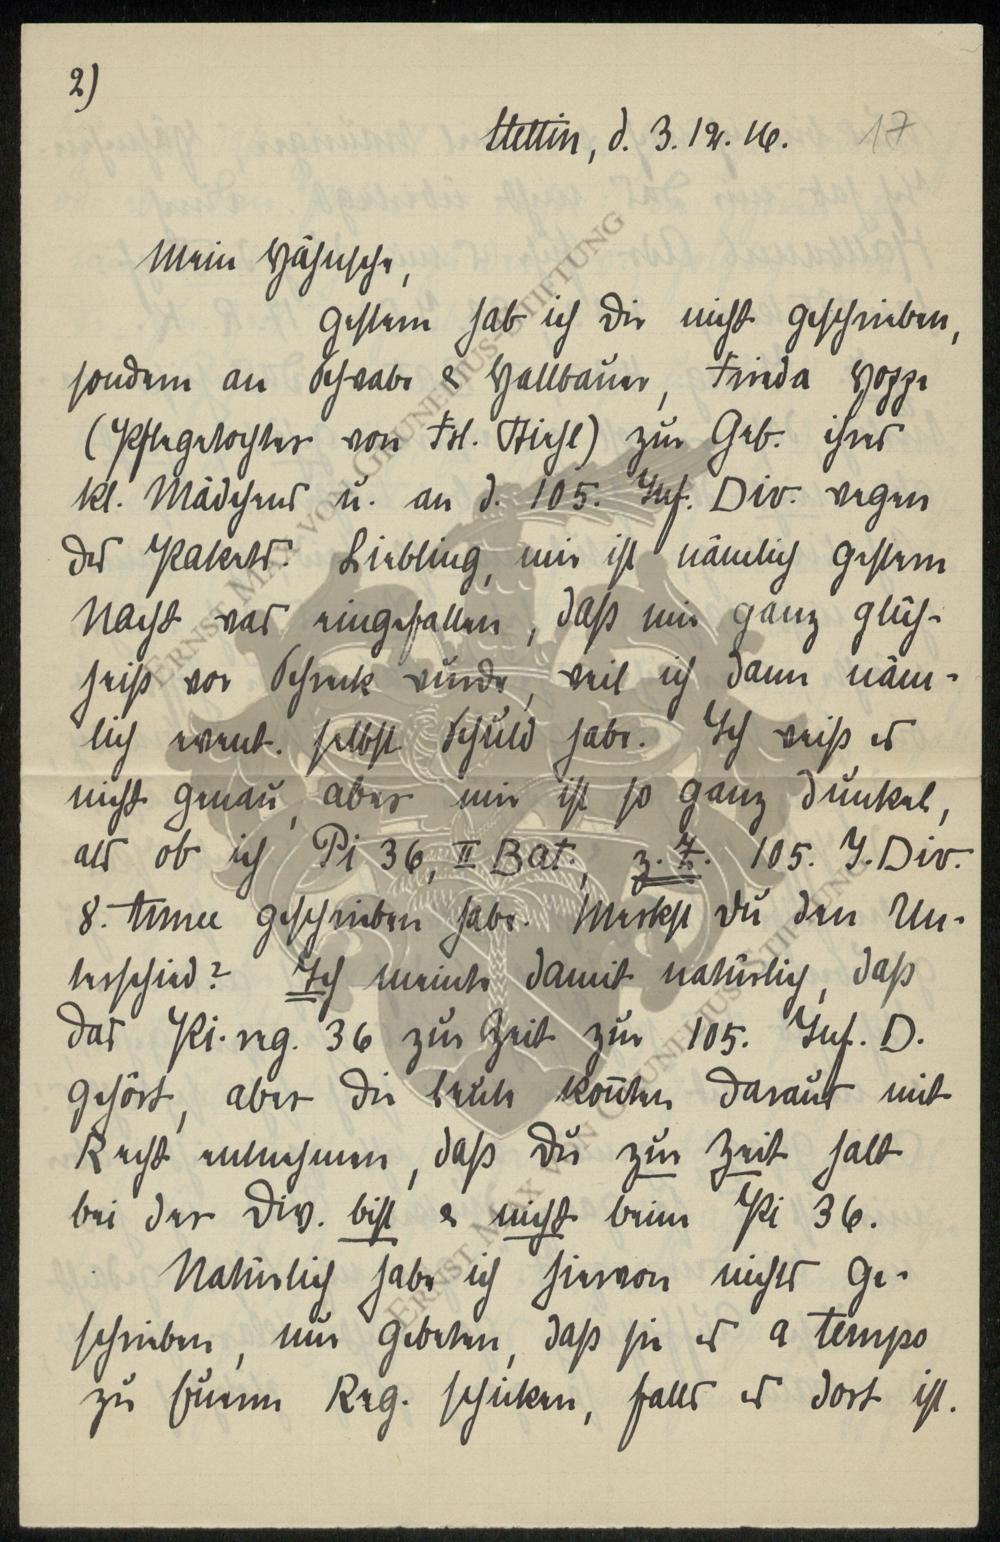 2)
Stettin, d. 3.12.16.
17
Mein Hähnsche,
gestern hab ich Dir nicht geschrieben,
sondern an Schwabe & Hallbauer, Frieda Hoppe
(Pflegetochter von Frl. Stiehl) zur Geb. ihres
kl. Mädchens u. an d. 105. Inf. Div. wegen
des Pakets. Liebling, mir ist nämlich gestern
Nacht was eingefallen, daß mir ganz glüh-
heiß vor Schreck wurde, weil ich dann näm-
lich event. selbst Schuld habe. Ich weiß es
nicht genau, aber mir ist so ganz dunkel,
als ob ich Pi 36, II Bat., z. Z. 105. I. Div.
8. Armee geschrieben habe. Merkst Du den Un-
terschied? Ich meinte damit natürlich, daß
das Pi. reg. 36 zur Zeit zur 105. Inf. D.
gehört, aber die Leute konnten daraus mit
Recht entnehmen, daß Du zur Zeit halt
bei der Div. bist & nicht beim Pi 36.
Natürlich habe ich hiervon nichts ge-
schrieben, nur gebeten, daß sie es a tempo
zu Euerm Reg. schicken, falls es dort ist.
ERNST MAX VON GRUNELIUS-STIFTUNG
ERNST MAX VON GRUNELIUS-STIFTUNG